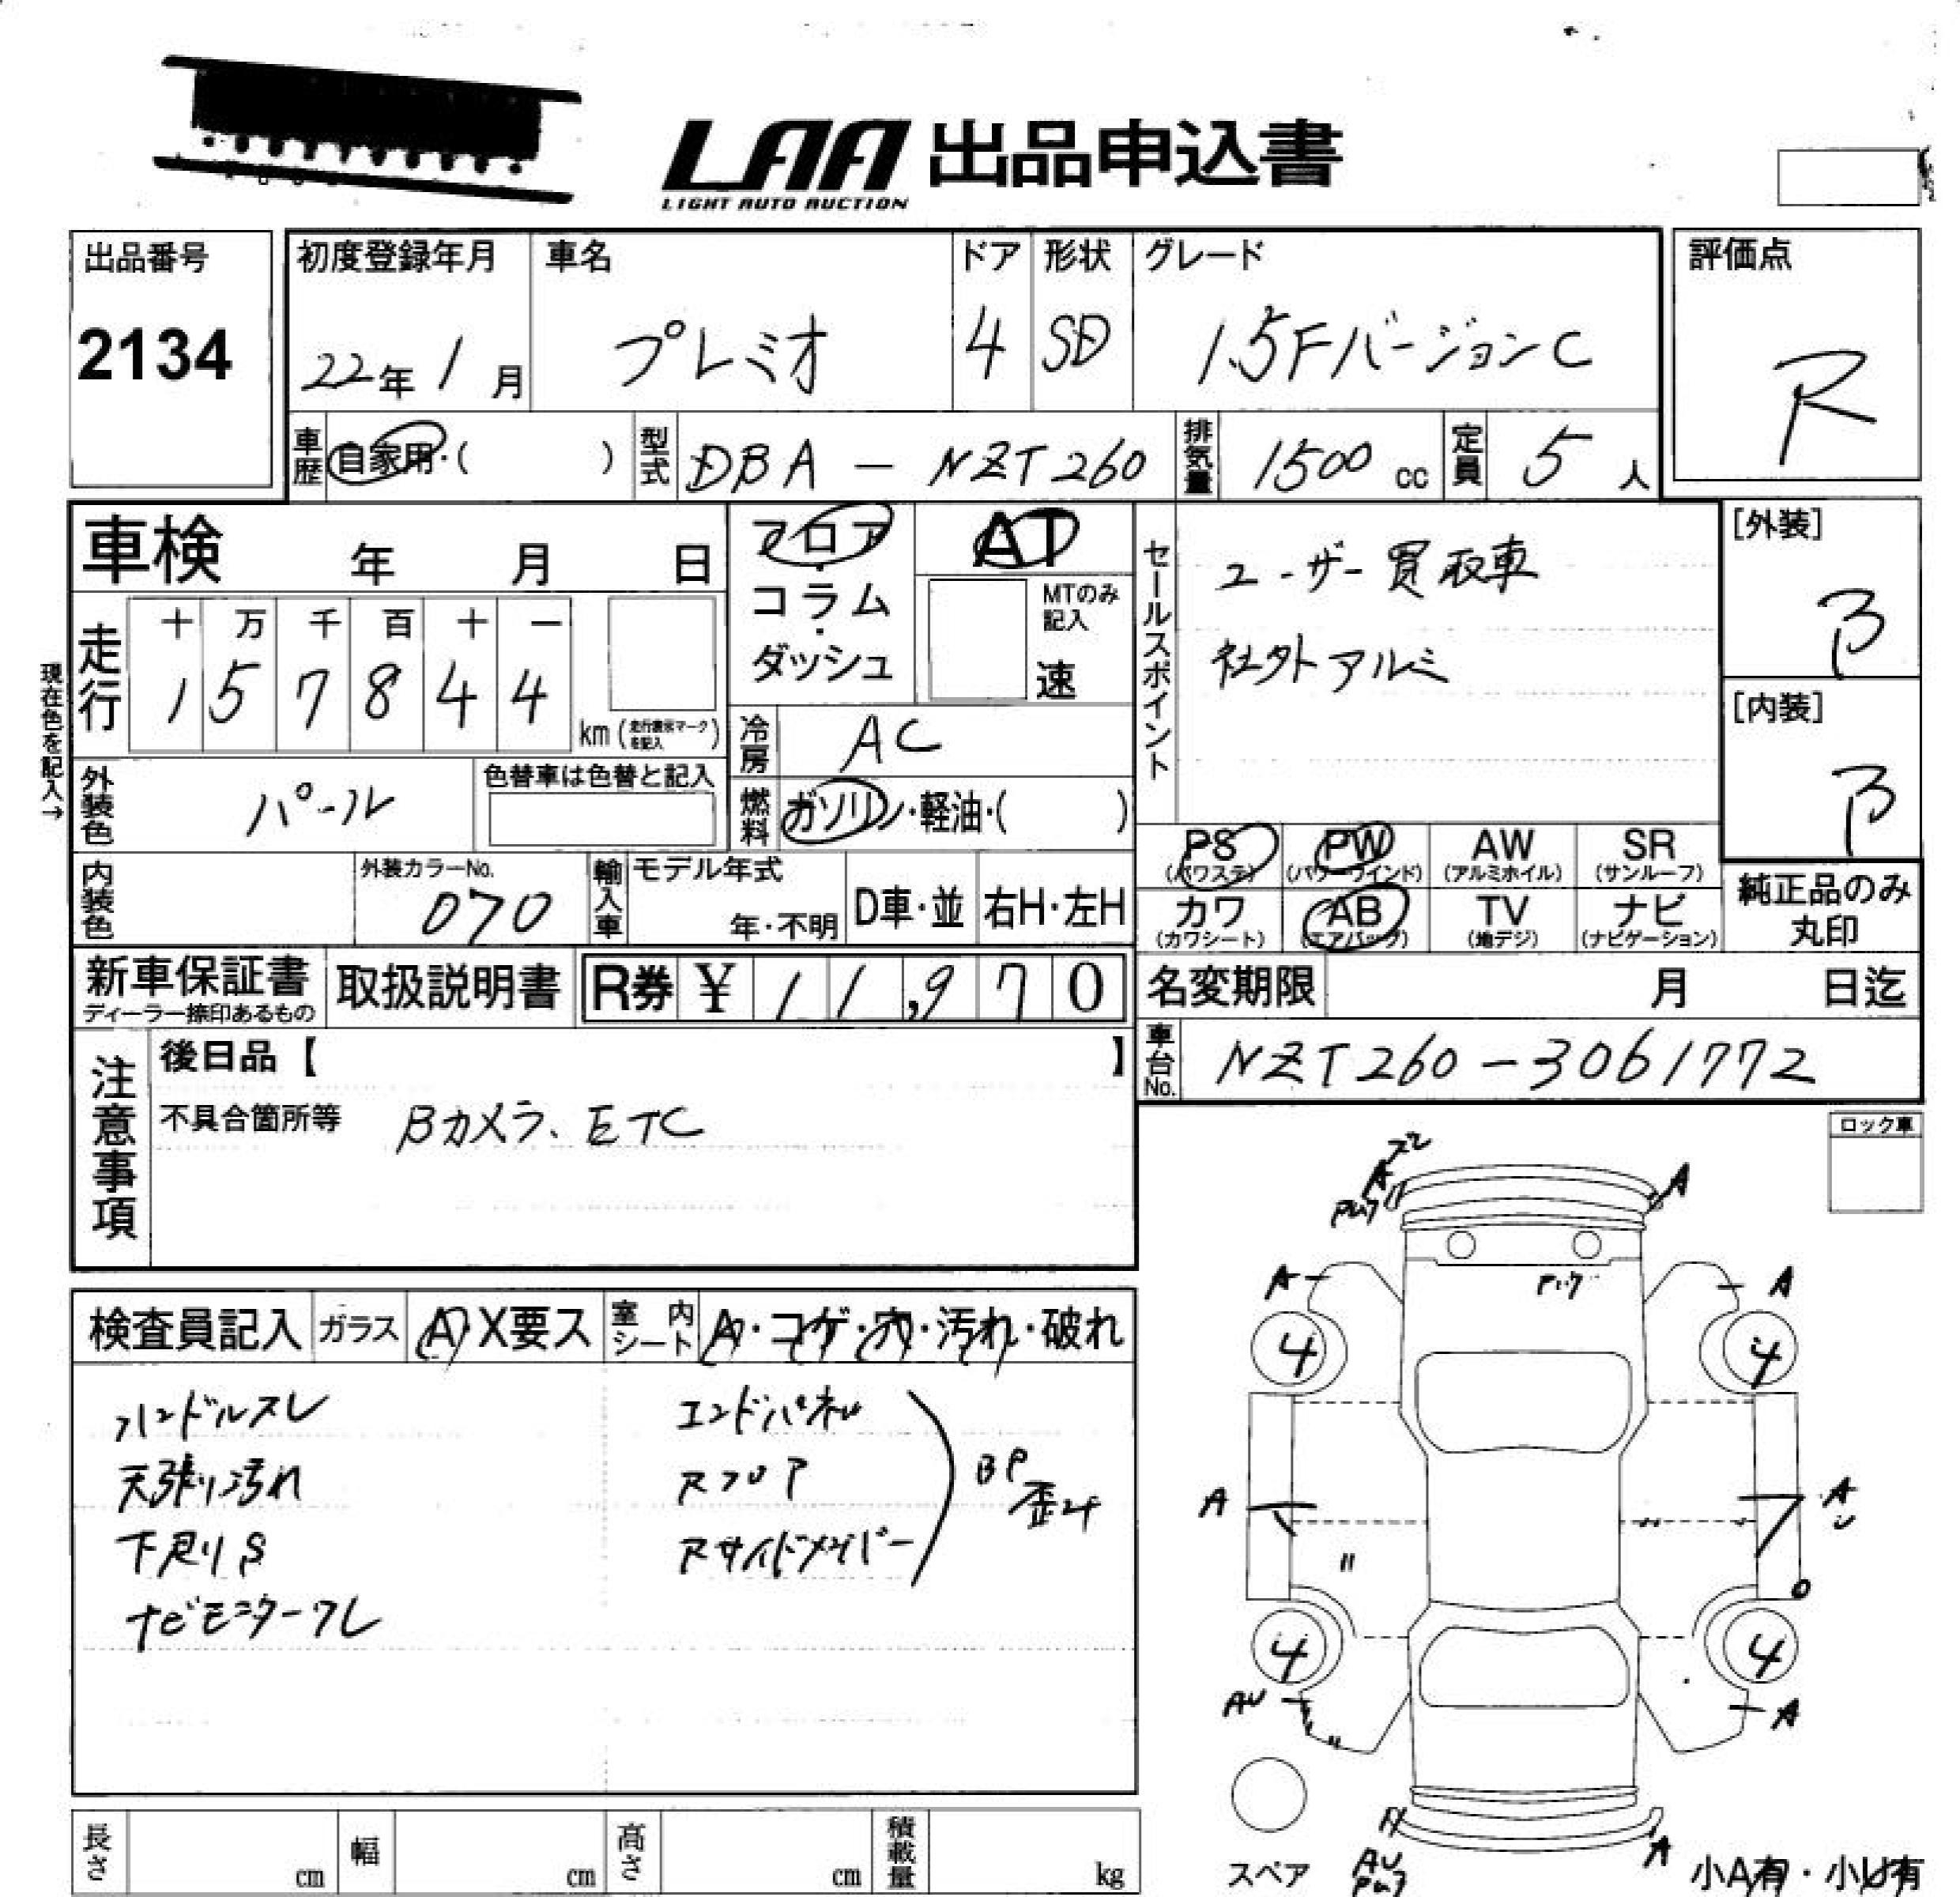 LAA 出品申込書
LIGHT AUTO AUCTION
出品番号
2134
初度登録年月
22年 1月
車名
プレミオ
ドア
4
形状
SD
グレード
1.5FバージョンC
評価点
R
車歴
自家用・( )
型式
DBA - NZT260
排気量
1500 cc
定員
5 人
車検 年 月 日
フロア・コラム・ダッシュ
AT
MTのみ記入
速
セールスポイント
ユーザー買取車
社外アルミ
[外装]
B
[内装]
B
現在色を記入→
走行
十 万 千 百 十 一
1 5 7 8 4 4
km (走行表示マークを記入)
冷房
AC
外装色
パール
色替車は色替と記入
燃料
ガソリン・軽油・( )
PS
(パワステ)
PW
(パワーウインド)
AW
(アルミホイル)
SR
(サンルーフ)
内装色
外装カラーNo.
070
輸入車
モデル年式
年・不明
D車・並
右H・左H
カワ
(カワシート)
AB
(エアバッグ)
TV
(地デジ)
ナビ
(ナビゲーション)
純正品のみ
丸印
新車保証書
ディーラー捺印あるもの
取扱説明書
R券 ¥ 11,970
名変期限 月 日迄
車台No.
NZT260-3061772
注意事項
後日品【 】
不具合箇所等 Bカメラ、ETC
ロック車
検査員記入
ガラス
A・X要ス
室内シート
A・コゲ・穴・汚れ・破れ
ハンドルスレ
天張り汚れ
下廻りS
ナビモニターワレ
エンドパネル
Rフロア
Rサイドメンバー
BP
歪み
A
A
A
A
4
4
A
A
4
4
AU
A
AU
A
スペア
小A有・小U有
長さ cm
幅 cm
高さ cm
積載量 kg